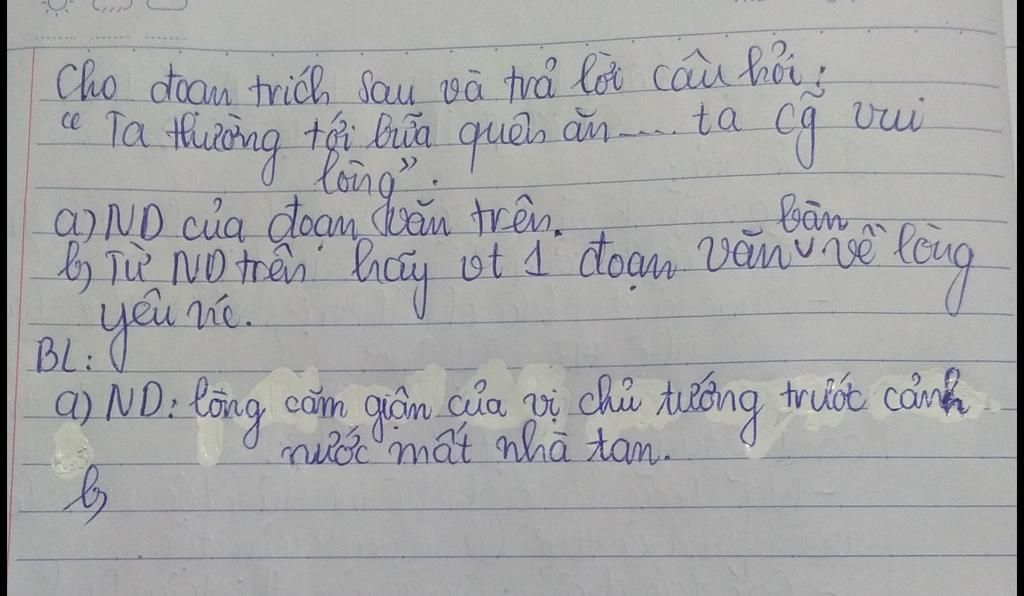 Cho đoạn trích sau và trả lời câu hỏi:
" Ta thường tới bữa quên ăn .... ta cg̃ vui
lòng".
a) ND của đoạn văn trên.
bàn
b) Từ ND trên hãy vt 1 đoạn văn v về lòng
yêu nc.
BL:
a) ND: lòng căm giận của vị chủ tướng trước cảnh
nước mất nhà tan.
b)